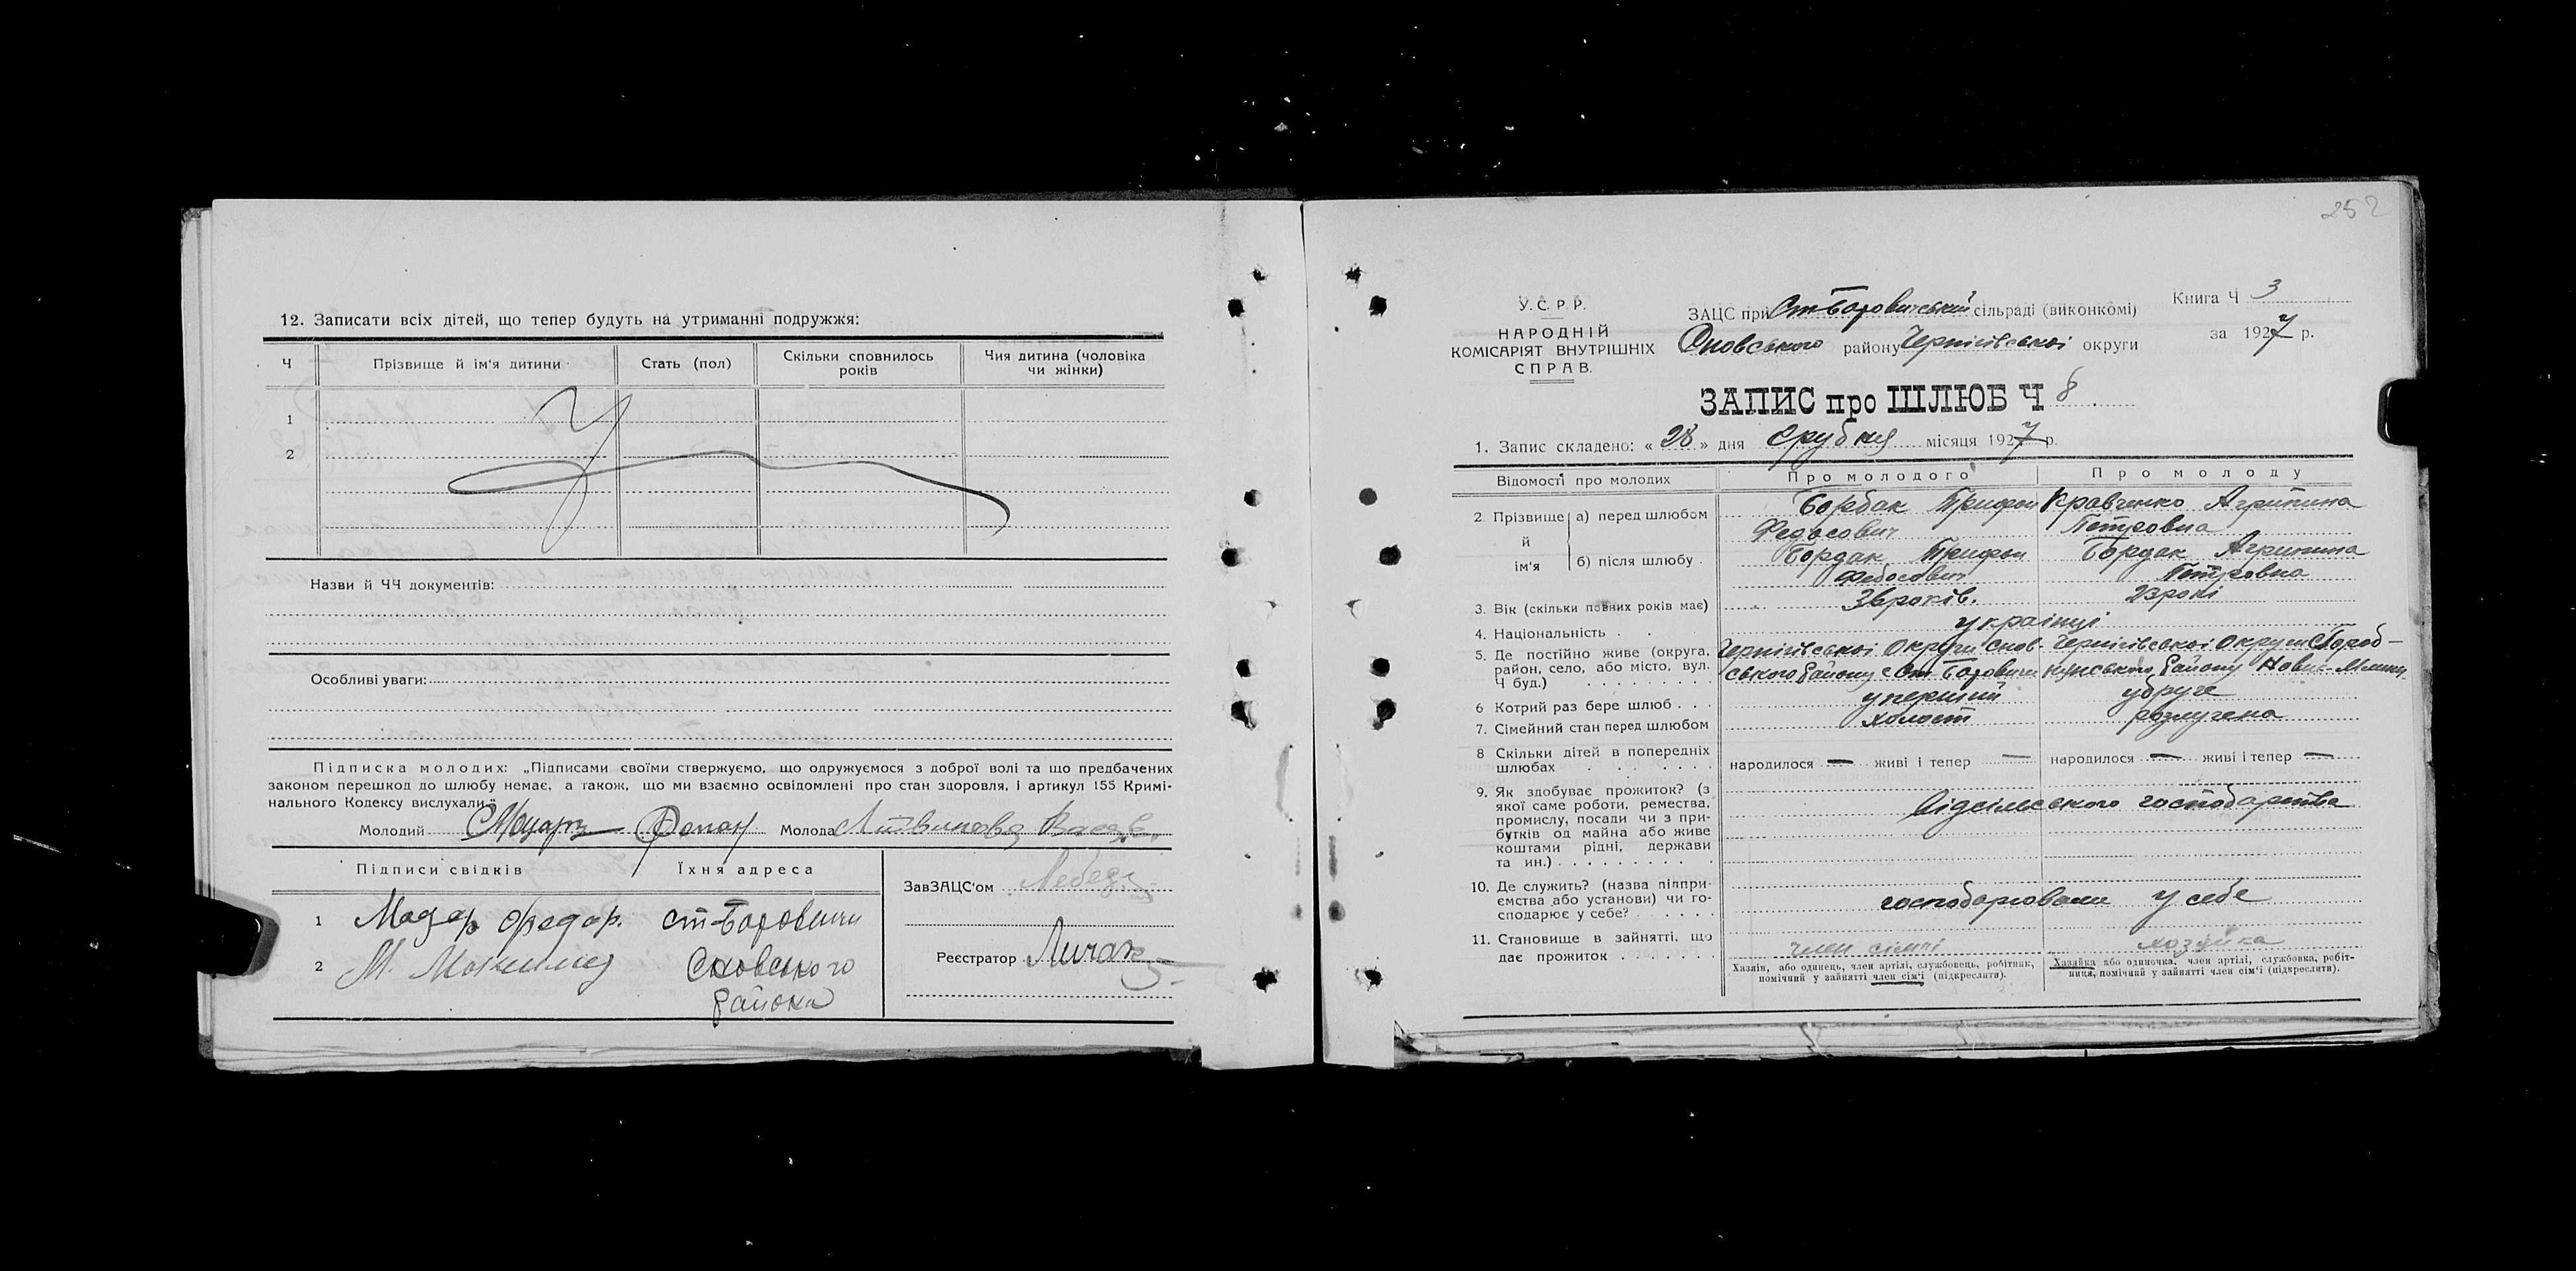 12. Записати всіх дітей, що тепер будуть на утриманні подружжя:
Ч
Прізвище й ім'я дитини
Стать (пол)
Скільки сповнилось років
Чия дитина (чоловіка чи жінки)
1
2
Назви й ЧЧ документів:
Особливі уваги:
Підписка молодих: „Підписами своїми ствержуємо, що одружуємося з доброї волі та що предбачених
законом перешкод до шлюбу немає, а також, що ми взаємно освідомлені про стан здоровля, і артикул 155 Кримі-
нального Кодексу вислухали."
Молодий Молода Литвинова
Підписи свідків Їхня адреса
1 Федор. ст-Боровичи
2 М. Сновського
района
ЗавЗАЦС'ом
Реєстратор
252
У.С.Р.Р.
НАРОДНІЙ
КОМІСАРІЯТ ВНУТРІШНІХ
СПРАВ.
ЗАЦС при Ст-Боровичський сільраді (виконкомі)
Сновського району Чернігівської округи
Книга Ч 3
за 1927 р.
ЗАПИС про ШЛЮБ Ч 8
1. Запис складено: « 28 » дня місяця 1927 р.
Відомості про молодих
Про молодого
Про молоду
2. Прізвище й ім'я
а) перед шлюбом
Трифон Федосович
Кравченко Агрипина Петровна
б) після шлюбу
Трифон Федосович
Агрипина Петровна
3. Вік (скільки повних років має)
років.
23 роки
4. Національність
українці
5. Де постійно живе (округа,
район, село, або місто, вул.
Ч буд.)
Чернігівської округи Снов-
ського району с Ст Боровичи
Чернігівської округи
району Нові Млини
6 Котрий раз бере шлюб
у перший
у друге
7. Сімейний стан перед шлюбом
холост
розлучена
8 Скільки дітей в попередніх
шлюбах
народилося — живі і тепер —
народилося — живі і тепер —
9. Як здобуває прожиток? (з
якої саме роботи, ремества,
промислу, посади чи з при-
бутків од майна або живе
коштами рідні, держави
та ин.)
від сільського господарства
10. Де служить? (назва підпри-
ємства або установи) чи го-
сподарює у себе?
господарювали у себе
11. Становище в зайнятті, що
дає прожиток
член сімї
хозяйка
Хазяїн, або одинець, член артілі, службовець, робітник,
помічний у зайнятті член сім'ї (підкреслити).
Хазяйка або одиночка, член артілі, службовка, робіт-
ниця, помічний у зайнятті член сім'ї (підкреслити).